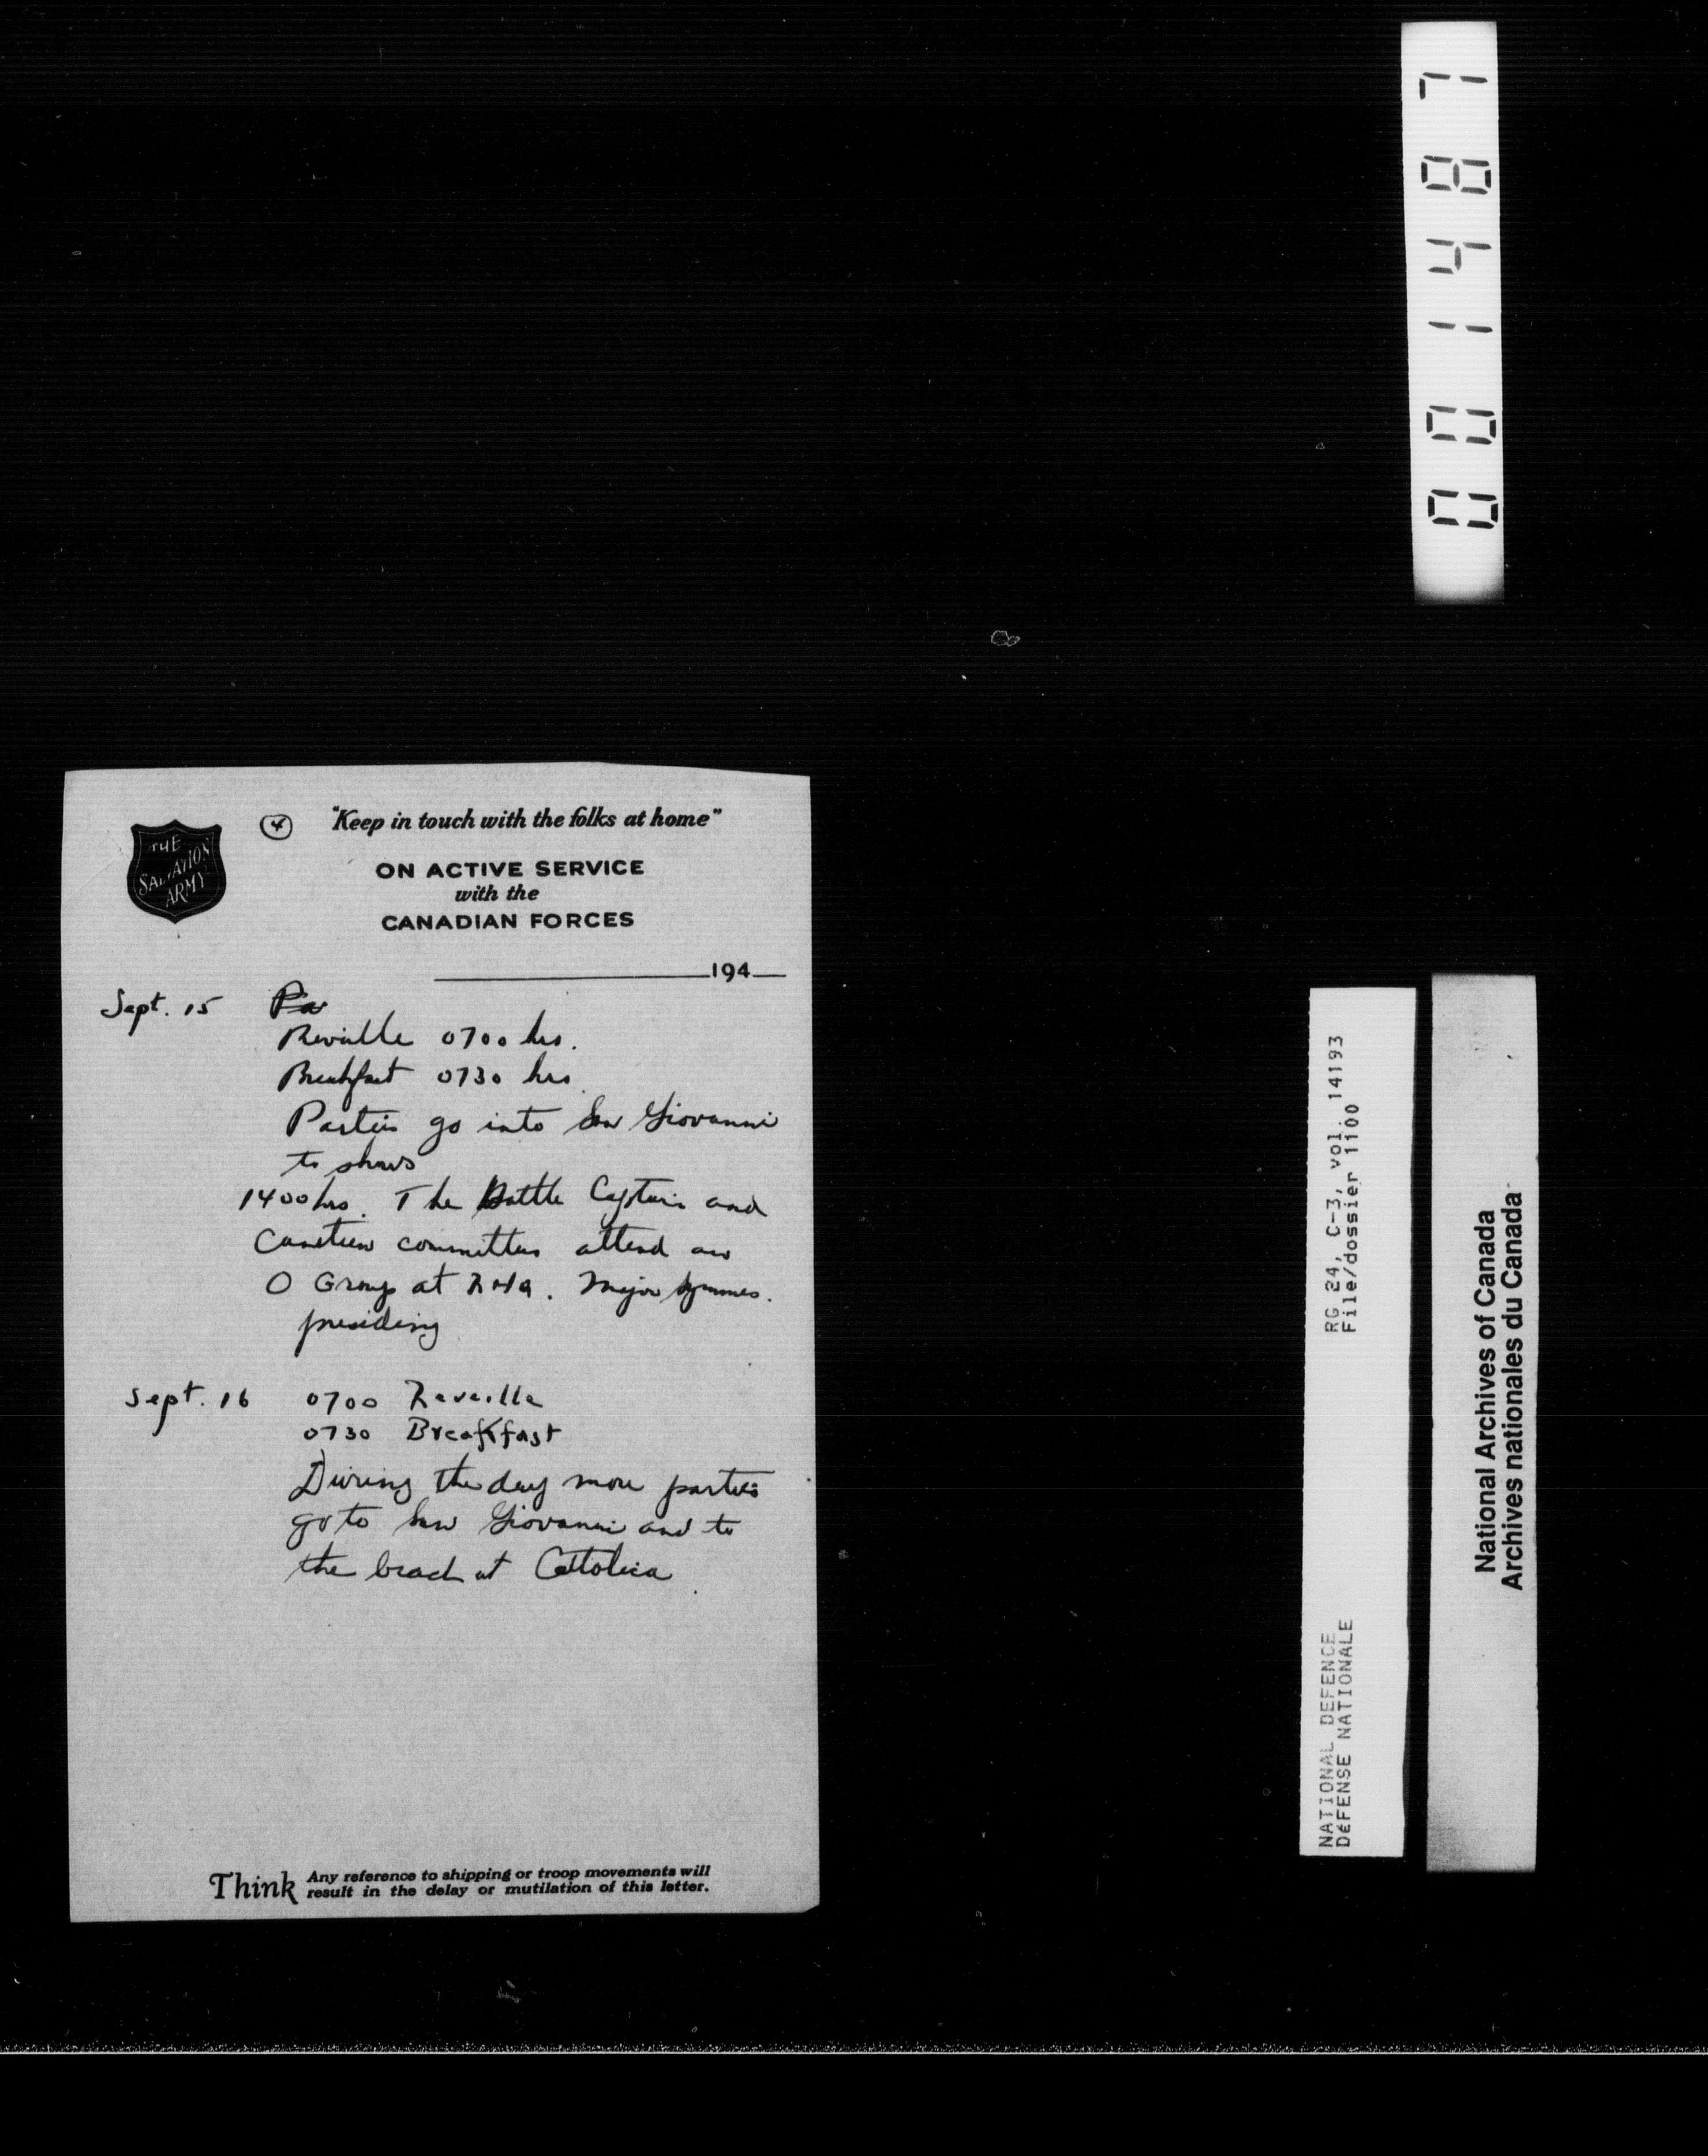 THE
SALVATION
ARMY
4
"Keep in touch with the folks at home"
ON ACTIVE SERVICE
with the
CANADIAN FORCES
194
Sept. 15
Reveille 0700 hrs.
Breakfast 0730 hrs
Parties go into San Giovanni
to shows
1400 hrs. The Battle Captain and
Canteen committee attend an
O Group at RHQ. Major Symmes.
presiding
Sept. 16 0700 Reveille
0730 Breakfast
During the day more parties
go to San Giovanni and to
the beach at Cattolica
Think Any reference to shipping or troop movements will
result in the delay or mutilation of this letter.
001487
NATIONAL DEFENCE RG 24, C-3, vol. 14193
DéFENSE NATIONALE File/dossier 1100
National Archives of Canada
Archives nationales du Canada